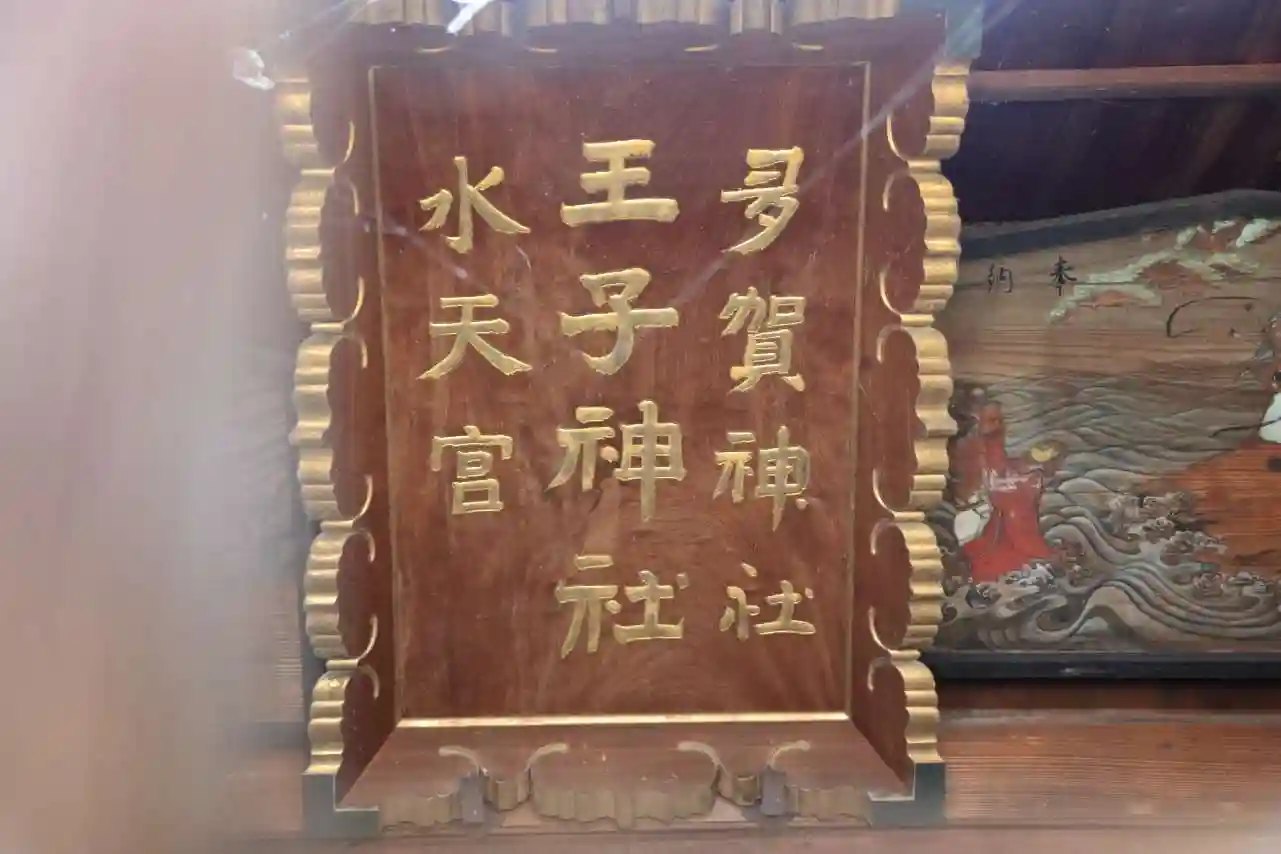 多賀神社
王子神社
水天宮
奉納